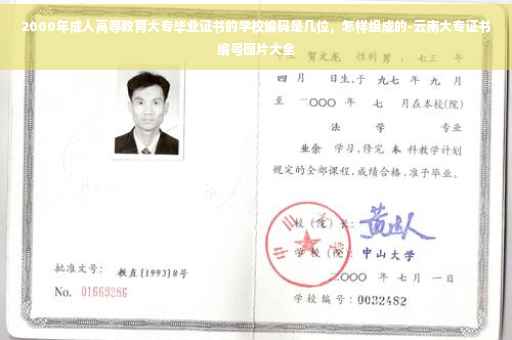 2000年成人高等教育大专毕业证书的学校编码是几位，怎样组成的-云南大专证书
编号图片大全
贺文龙 性别男，七三 年
四 月 日生，于 九七 年 九 月
至 二〇〇〇 年 七 月在本校(院)
法 学 专业
业余 学习，修完 本 科教学计划
规定的全部课程，成绩合格，准予毕业。
校 (院) 长：
学 校 (院)： 中山大学
批准文号： 教直[1993]8号
二〇〇〇 年 七 月 一日
No. 01663286
学校编号：0032482